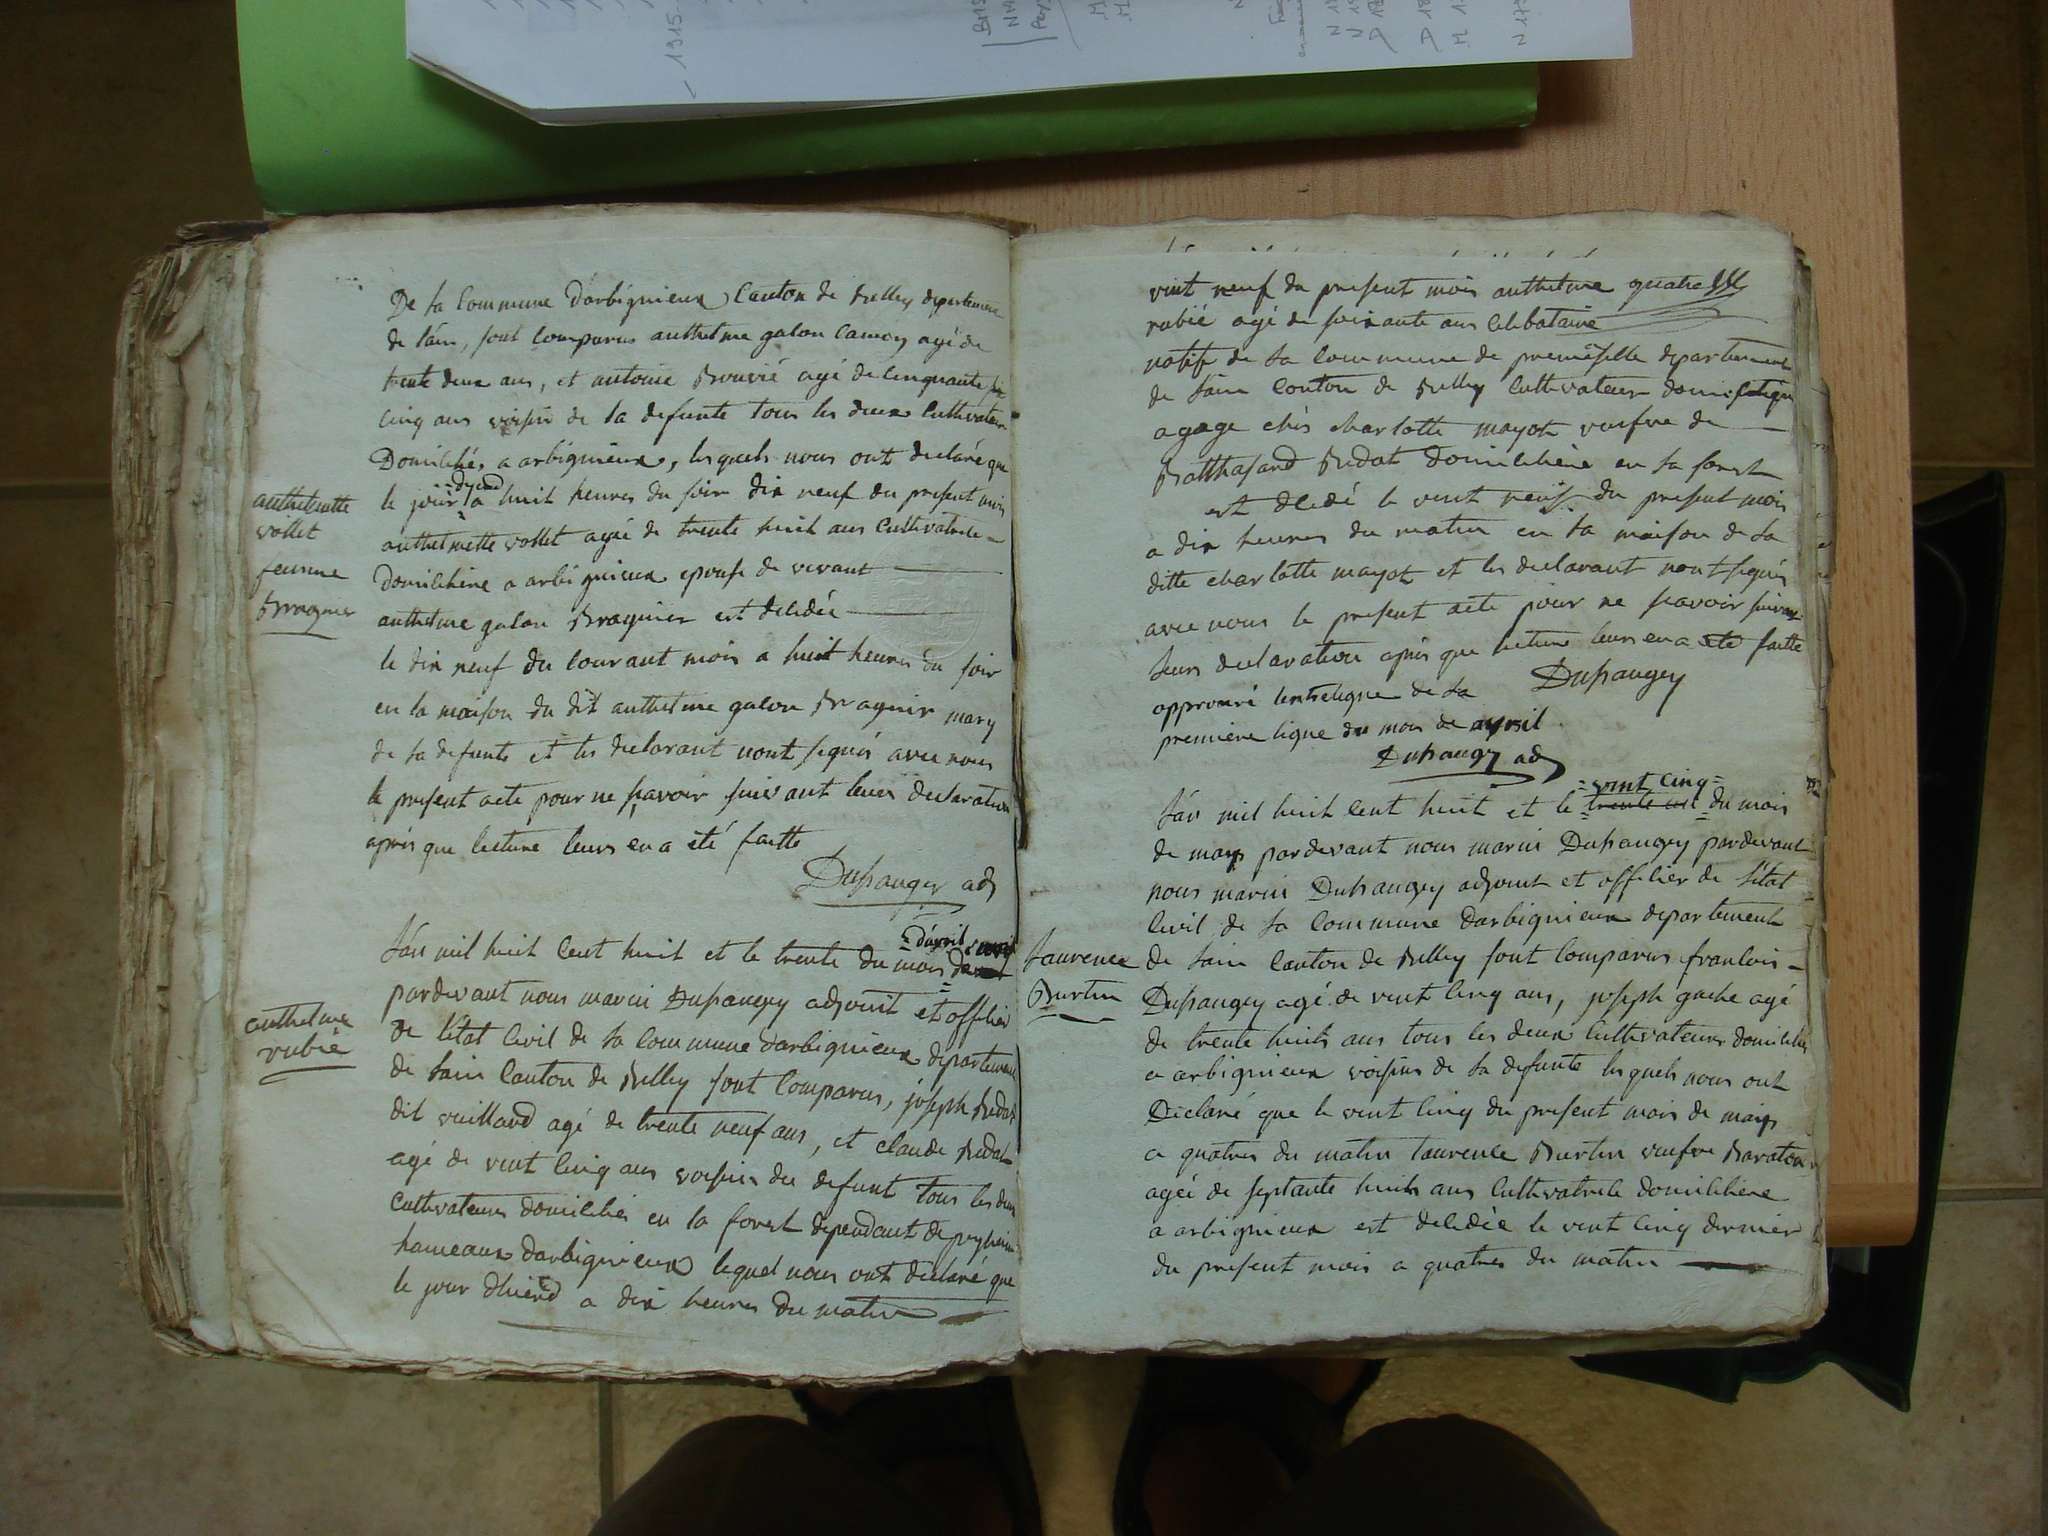 De la Commune darbignieux Canton de Belley departement
de lain, sont Comparus anthelme galon Camoz agé de
trente deux ans, et antoine Bouvié agé de cinquante
cinq ans voisin de la defunte tous les deux Cultivateur
Domiciliés a arbignieux, lesquels nous ont declaré que
le jour a huit heures du soir dix neuf du present mois
anthelmette vollet agée de trente huit ans Cultivatrice
domicilière a arbignieux epouse de vivant
anthelme galon Bragnier est décédée
le dix neuf du courant mois a huit heures du soir
en la maison du dit anthelme galon Bragnier mary
de la defunte et les declarant nont signés avec nous
le present acte pour ne scavoir suivant leurs declaration
après que lecture leurs en a été faitte
Duhaugey adj
anthelmette
vollet
femme
Bragnier
Lan mil huit cent huit et le trente du mois
=davril
pardevant nous marin Duhaugey adjoint et officier
de létat Civil de la Commune darbignieux departement
de lain Canton de Belley sont Comparus, joseph Budat
dit vuillard agé de trente neuf ans, et claude Budat
agé de vint cinq ans voisins du defunt tous les deux
Cultivateurs domiciliés en la forest dependant de
hameaux darbignieux lequel nous ont declaré que
le jour dhierd a dix heures du matin
anthelme
rubié
vint neuf du present mois anthelme quatre
rubié agé de soixante ans Celibataire
natif de la Commune de premeselle departement
de lain Canton de Belley Cultivateur domestique
a gage chés charlotte mayot veufve de
Balthasard Budat domicilière en la forest
est décédé le vint neuf du present mois
a dix heures du matin en la maison de la
ditte charlotte mayot et les declarant nont signés
avec nous le present acte pour ne scavoir suivant
leurs declaration après que lecture leurs en a eté faitte
approuvé lentreligne de la Duhaugey
première ligne du mois de avril
Duhaugey adj
=vint cinq=
Lan mil huit cent huit et le trente un du mois
de mays pardevant nous marin Duhaugey pardevant
nous marin Duhaugey adjoint et officier de létat
Civil de la Commune darbignieux departement
de lain Canton de Belley sont Comparus francois
Duhaugey agé de vint cinq ans, joseph gache agé
de trente huits ans tous les deux Cultivateurs domiciliés
a arbignieux voisins de la defunte lesquels nous ont
Declaré que le vint cinq du present mois de mays
a quatres du matin laurence Burtin veufve Baraton
agée de septante huits ans Cultivatrice domicilière
a arbignieux est décédée le vint cinq dernier
du present mois a quatres du matin
Laurence
Burtin
1915